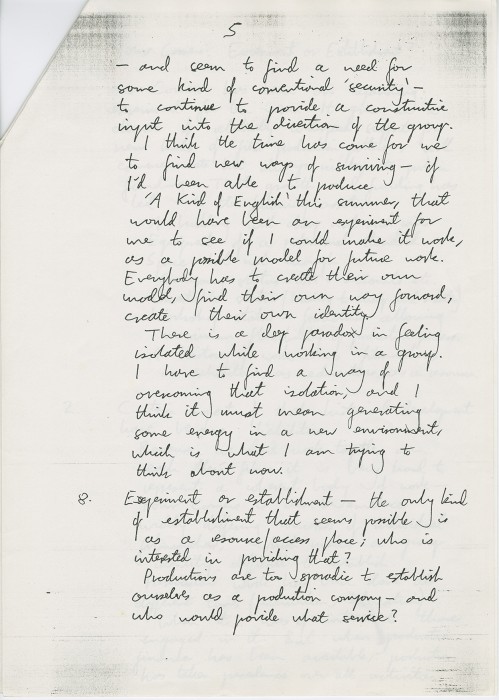 5
– and seem to find a need for
some kind of conventional 'security' –
to continue to provide a constructive
input into the direction of the group.
I think the time has come for me
to find new ways of surviving – if
I'd been able to produce
'A Kind of English' this summer, that
would have been an experiment for
me to see if I could make it work,
as a possible model for future work.
Everybody has to create their own
model, find their own way forward,
create their own identity.
There is a deep paradox in feeling
isolated while working in a group.
I have to find a way of
overcoming that isolation, and I
think it must mean generating
some energy in a new environment,
which is what I am trying to
think about now.
8. Experiment or establishment – the only kind
of establishment that seems possible is
as a resource/access place; who is
interested in providing that?
Productions are too sporadic to establish
ourselves as a production company – and
who would provide what service?